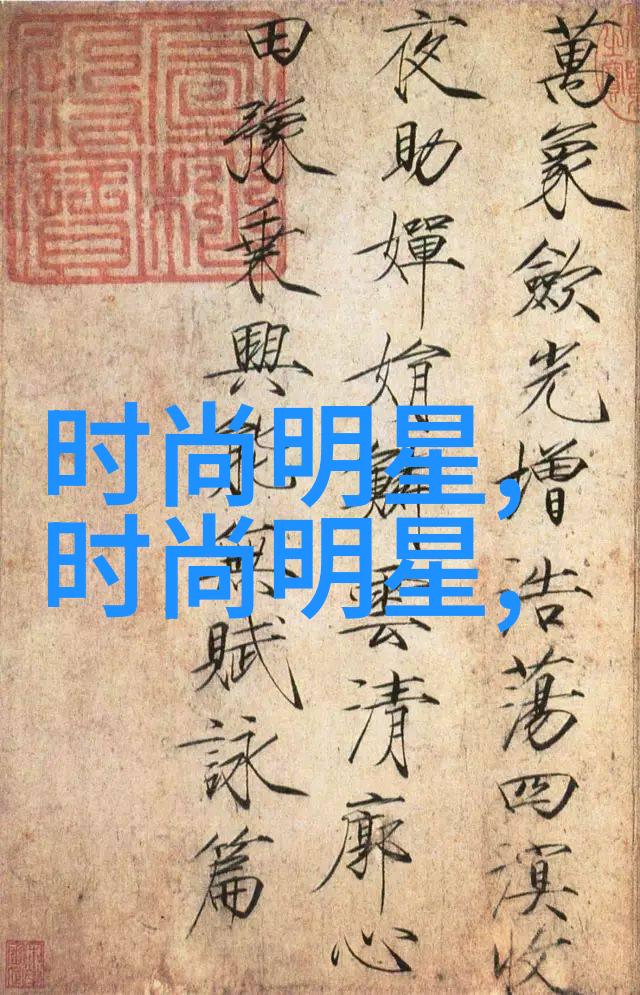 萬象歛光增浩蕩四溟收
夜助嬋娟鱗雲清廓心
田豫乘興能無賦詠篇
时尚明星,
时尚明星,